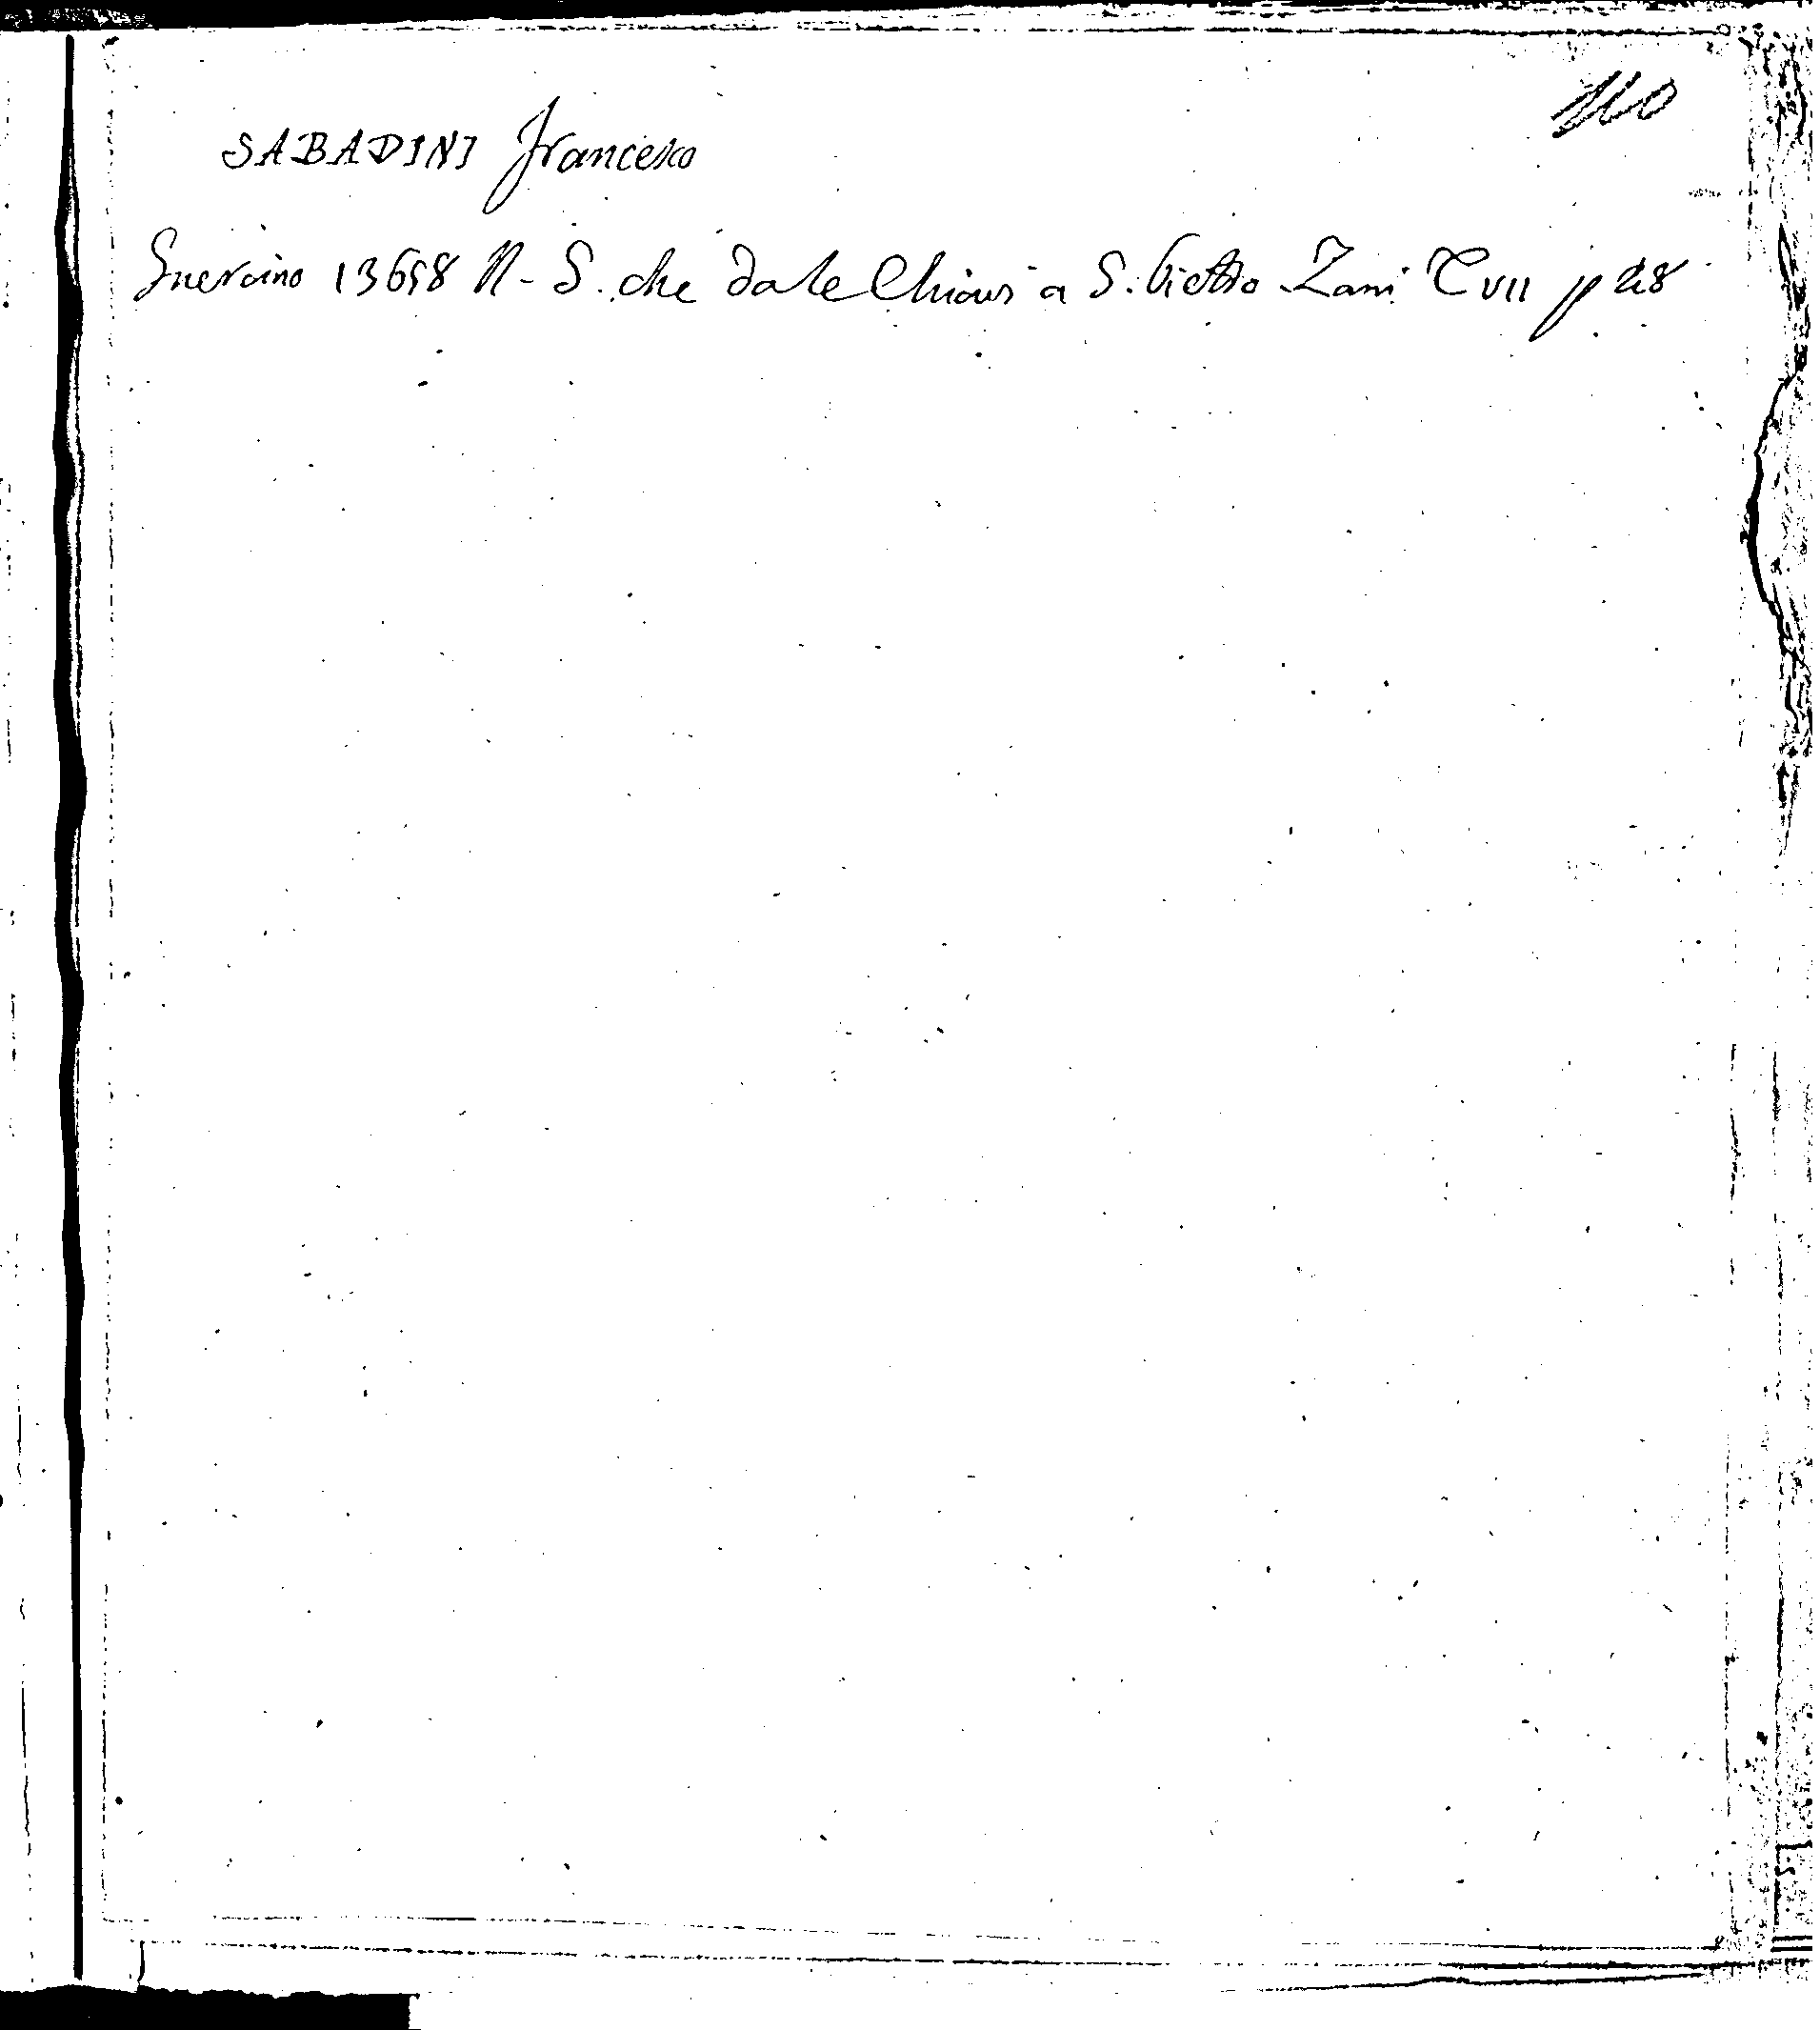 110
SABADINI Francesco
Guercino 13658 N. S. che da le Chiavi a S. Pietro Zani T VII p 28